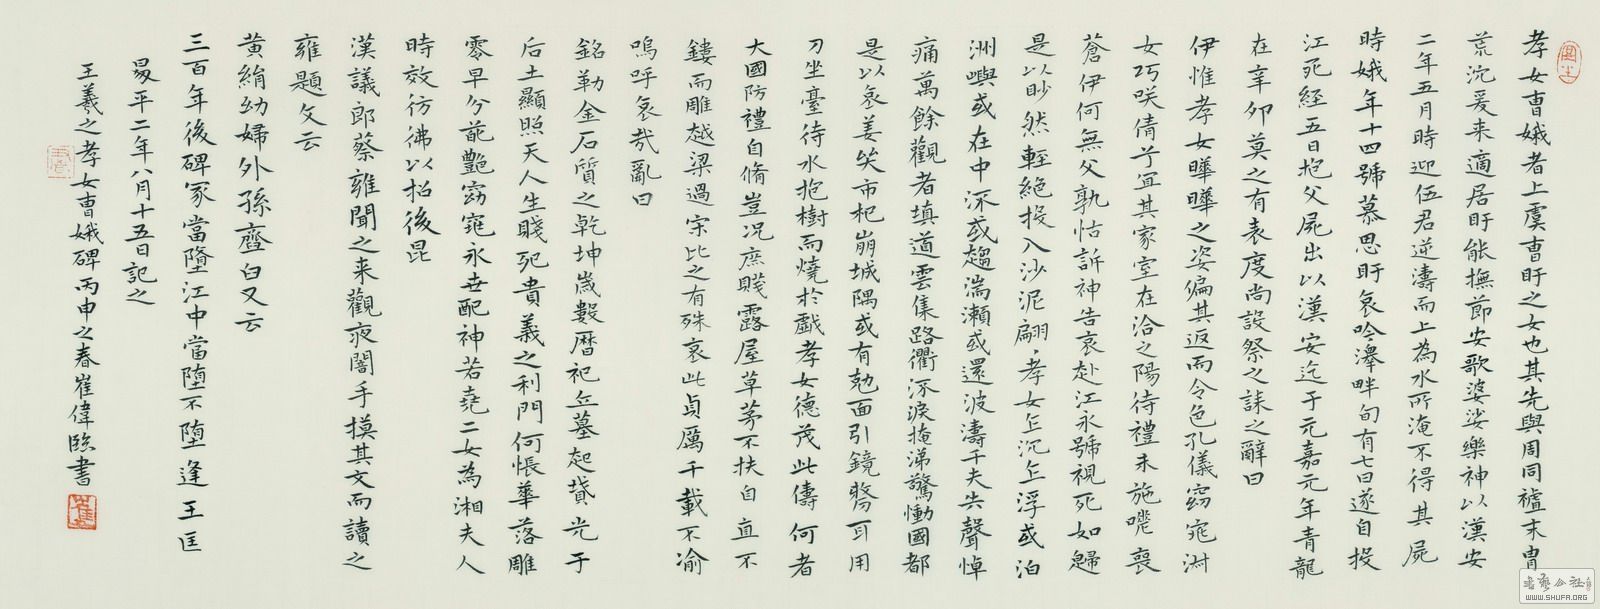 孝女曺娥者上虞曺盱之女也其先與周同𥘵末冑
荒沇爰来適居盱能撫節安歌婆娑樂神以漢安
二年五月時迎伍君逆濤而上為水所淹不得其屍
時娥年十四號慕思盱哀吟澤畔旬有七日遂自投
江死經五日抱父屍出以漢安迄于元嘉元年青龍
在辛卯莫之有表度尚設祭之誄之辭曰
伊惟孝女曄曄之姿偏其返而令色孔儀窈窕淑
女巧咲倩兮冝其家室在洽之陽待禮未施嗟喪
蒼伊何無父孰怙訴神告哀赴江永號視死如歸
是以眇然輕絕投入沙泥翩翩孝女乍沉乍浮或泊
洲嶼或在中流或趨湍瀬或還波濤千夫失聲悼
痛萬餘觀者填道雲集路衢流淚掩涕驚慟國都
是以哀姜哭市杞崩城隅或有尅面引鏡剺耳用
刀坐臺待水抱樹而燒於戲孝女德茂此儔何者
大國防禮自脩豈况庶賤露屋草茅不扶自直不
鏤而雕越梁過宋比之有殊哀此貞厲千載不渝
嗚呼哀哉亂曰
銘勒金石質之乾坤歲數曆祀丘墓起墳光于
后土顯照天人生賤死貴義之利門何悵華落雕
零早分葩艷窈窕永世配神若堯二女為湘夫人
時效彷彿以招後昆
漢議郎蔡雍聞之来觀夜闇手摸其文而讀之
雍題文云
黄絹幼婦外孫齏臼又云
三百年後碑冢當墮江中當墮不墮逢王匡
昇平二年八月十五日記之
王羲之孝女曺娥碑丙申之春崔偉臨書
WWW.SHUFA.ORG